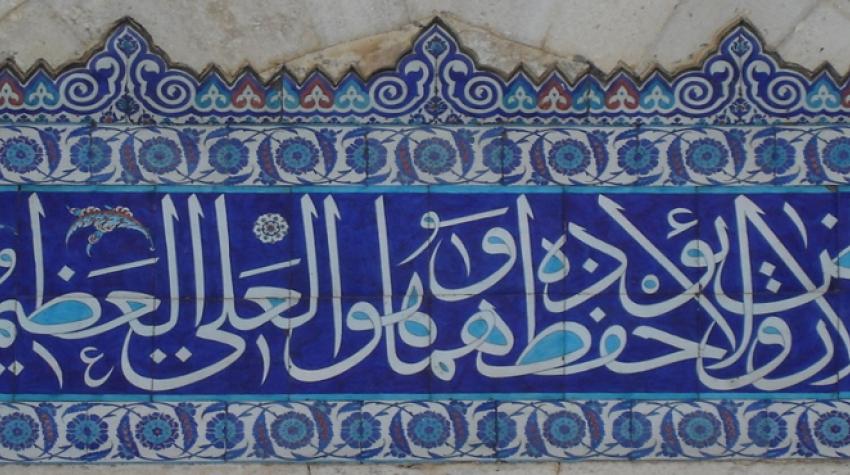 ولا يؤده حفظهما وهو العلي العظيم